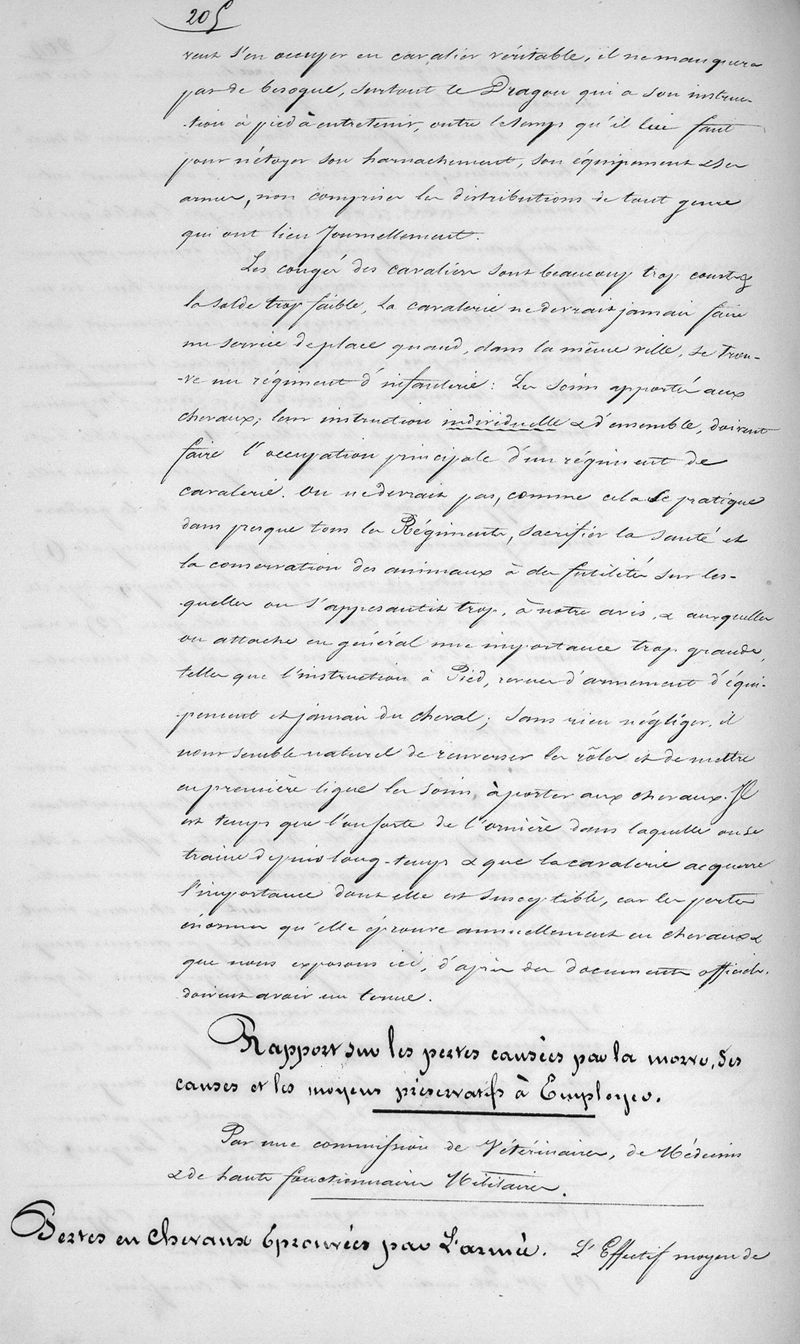 205
veut s'en occuper en cavalier véritable, il ne manquera
pas de besogne, surtout le Dragon qui a son instruc-
-tion à pied à entretenir, outre le temps qu'il lui faut
pour nétoyer son harnachement, son équipement & ses
armes, non comprises les distributions de tout genre
qui ont lieu Journellement.
Les congés des cavaliers sont beaucoup trop courts &
la solde trop faible, La cavalerie ne devrait jamais faire
un service de place quand, dans la même ville, se trou-
-ve un régiment d'infanterie: Les soins apportés aux
chevaux, leur instruction individuelle & d'ensemble, doivent
faire l'occupation principale d'un régiment de
cavalerie. On ne devrait pas, comme cela se pratique
dans presque tous les Régiments, sacrifier la santé et
la conservation des animaux à des futilités sur les-
quelles on s'appesantit trop, à notre avis, & auxquelles
on attache en général une importance trop grande,
telles que l'instruction à Pied, revues d'armement d'équi-
pement et jamais du cheval; Sans rien négliger, il
nous semble naturel de renverser les rôles et de mettre
en première ligne les soins, à porter aux chevaux. Il
est temps que l'on sorte de l'ornière dans laquelle on se
traine depuis long-temps & que la cavalerie acquerre
l'importance dont elle est susceptible, car les pertes
énormes qu'elle éprouve annuellement en chevaux &
que nous exposons ici, d'après des documents officiels.
doivent avoir un terme.
Rapport sur les pertes causées par la morve, Ses
causes et les moyens préservatifs à Employer.
Par une commission de Vétérinaires, de Médecins
& de hauts fonctionnaires Militaires.
Pertes en Chevaux Eprouvées par L'armée. L'Effectif moyen de